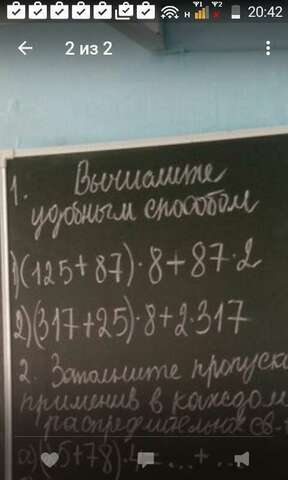 20:42
2 из 2
1. Вычислите
удобным способом
1) (125+87)·8+87·2
2) (317+25)·8+2·317
2. Заполните пропуски
применив в каждом
распределительное св-